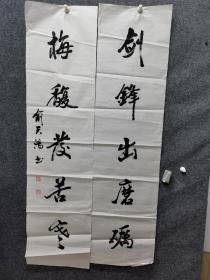 剑锋出磨砺
梅馥发苦寒
俞天鸿书